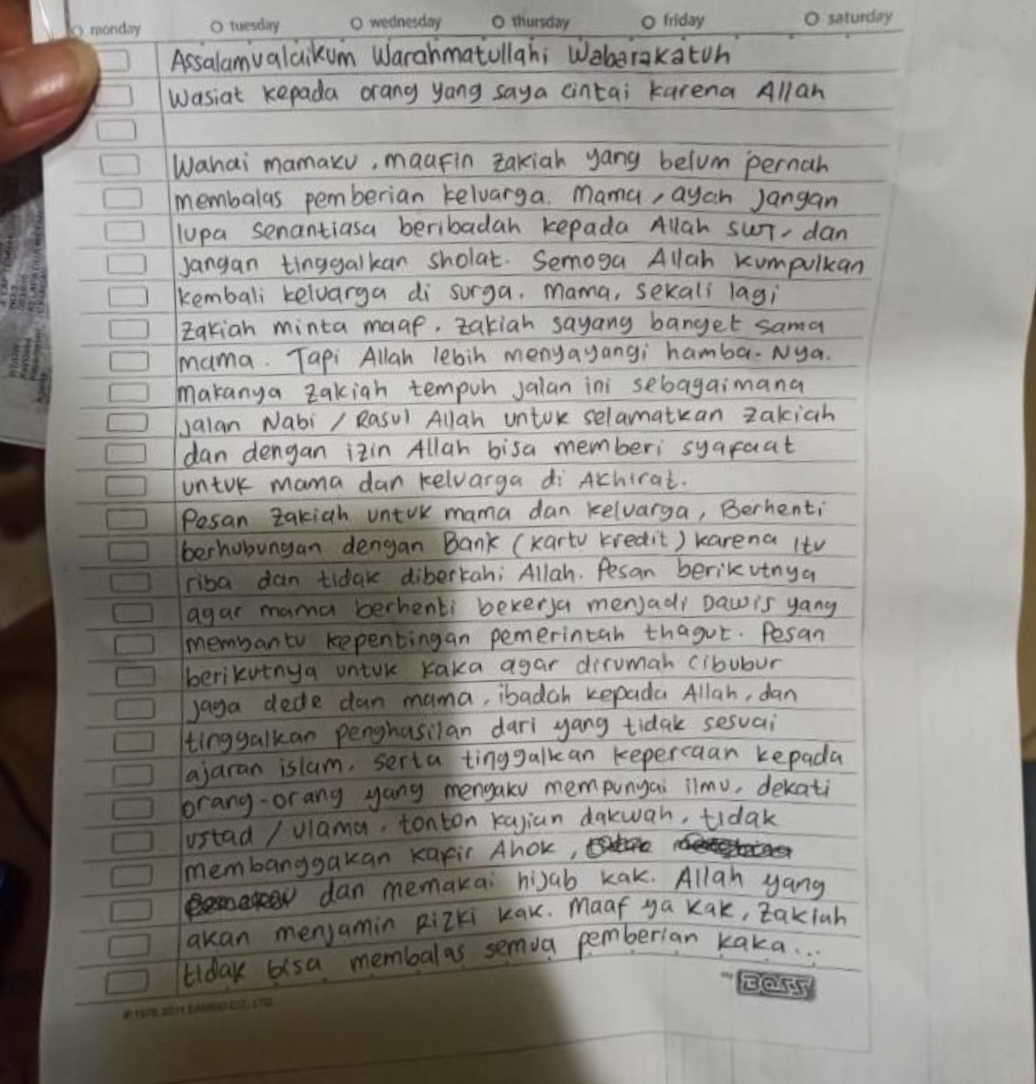 monday tuesday wednesday thursday friday saturday
Assalamualaikum Warahmatullahi Wabarakatuh
Wasiat kepada orang yang saya cintai karena Allah
Wahai mamaku, maafin zakiah yang belum pernah
membalas pemberian keluarga. Mama, ayah jangan
lupa senantiasa beribadah kepada Allah swT, dan
jangan tinggalkan sholat. Semoga Allah kumpulkan
kembali keluarga di surga. Mama, sekali lagi
zakiah minta maaf. zakiah sayang banget sama
mama. Tapi Allah lebih menyayangi hamba-Nya.
makanya zakiah tempuh jalan ini sebagaimana
jalan Nabi / Rasul Allah untuk selamatkan zakiah
dan dengan izin Allah bisa memberi syafaat
untuk mama dan keluarga di Akhirat.
Pesan zakiah untuk mama dan keluarga, Berhenti
berhubungan dengan Bank (kartu kredit) karena itu
riba dan tidak diberkahi Allah. Pesan berikutnya
agar mama berhenti bekerja menjadi Dawis yang
membantu kepentingan pemerintah thagut. Pesan
berikutnya untuk kaka agar dirumah cibubur
jaga dede dan mama, ibadah kepada Allah, dan
tinggalkan penghasilan dari yang tidak sesuai
ajaran islam. serta tinggalkan kepercaan kepada
orang-orang yang mengaku mempunyai ilmu, dekati
ustad / ulama, tonton kajian dakwah, tidak
membanggakan kafir Ahok,
dan memakai hijab kak. Allah yang
akan menjamin rizki kak. Maaf ya kak, zakiah
tidak bisa membalas semua pemberian kaka...
B@SS